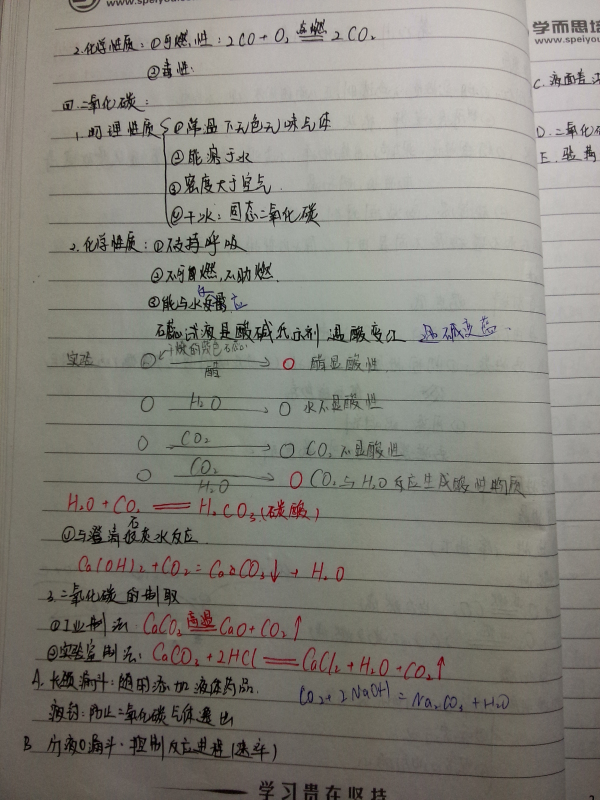 www.speiyou.com
学而思培
www.speiyou
2.化学性质:①可燃性:2CO+O₂ 点燃 2CO₂
②毒性.
四.二氧化碳:
1.物理性质 ①常温下无色无味气体
②能溶于水
③密度大于空气.
④干冰:固态二氧化碳
2.化学性质:①不支持呼吸
②不可燃,不助燃.
③能与水反应
石蕊试液是酸碱指示剂 遇酸变红 遇碱变蓝.
实验 干燥的紫色石蕊
醋 醋显酸性
H₂O 水不显酸性
CO₂ CO₂不显酸性
CO₂ H₂O CO₂与H₂O反应生成酸性物质
H₂O+CO₂ = H₂CO₃(碳酸)
④与澄清石灰水反应.
Ca(OH)₂+CO₂=CaCO₃↓+H₂O
3.二氧化碳的制取
①工业制法:CaCO₃ 高温 CaO+CO₂↑
②实验室制法:CaCO₃+2HCl = CaCl₂+H₂O+CO₂↑
A.长颈漏斗:随时添加液体药品.
CO₂+2NaOH=Na₂CO₃+H₂O
液封:防止二氧化碳气体逸出
B 分液漏斗:控制反应进程(速率)
学习贵在坚持
C.液面差
D.二氧化
E.验满